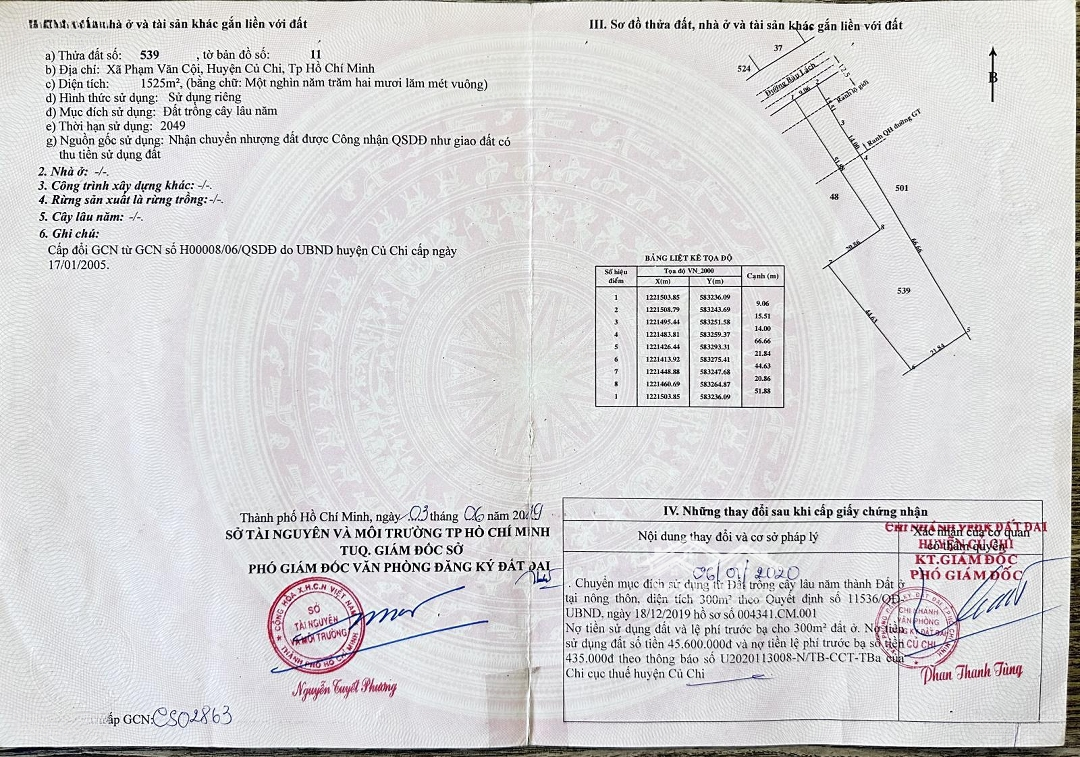 nhà ở và tài sản khác gắn liền với đất
a) Thửa đất số: 539 , tờ bản đồ số: 11
b) Địa chỉ: Xã Phạm Văn Cội, Huyện Củ Chi, Tp Hồ Chí Minh
c) Diện tích: 1525m², (bằng chữ: Một nghìn năm trăm hai mươi lăm mét vuông)
d) Hình thức sử dụng: Sử dụng riêng
đ) Mục đích sử dụng: Đất trồng cây lâu năm
e) Thời hạn sử dụng: 2049
g) Nguồn gốc sử dụng: Nhận chuyển nhượng đất được Công nhận QSDĐ như giao đất có
thu tiền sử dụng đất
2. Nhà ở: -/-.
3. Công trình xây dựng khác: -/-.
4. Rừng sản xuất là rừng trồng:-/-.
5. Cây lâu năm: -/-.
6. Ghi chú:
Cấp đổi GCN từ GCN số H00008/06/QSDĐ do UBND huyện Củ Chi cấp ngày
17/01/2005.
Thành phố Hồ Chí Minh, ngày 03 tháng 06 năm 2019
SỞ TÀI NGUYÊN VÀ MÔI TRƯỜNG TP HỒ CHÍ MINH
TUQ. GIÁM ĐỐC SỞ
PHÓ GIÁM ĐỐC VĂN PHÒNG ĐĂNG KÝ ĐẤT ĐAI
CỘNG HÒA X.H.C.N VIỆT NAM
SỞ
TÀI NGUYÊN
VÀ MÔI TRƯỜNG
THÀNH PHỐ HỒ CHÍ MINH
Nguyễn Tuyết Phương
cấp GCN: CS02863
III. Sơ đồ thửa đất, nhà ở và tài sản khác gắn liền với đất
37
524
12.5
Đường Bàu Lách
B
1
9.06
2
Ranh lộ giới
3
14.00
Ranh QH đường GT
4
51.88
501
48
8
20.86
66.66
7
539
44.63
5
21.84
6
BẢNG LIỆT KÊ TỌA ĐỘ
Số hiệu điểm Tọa độ VN_2000 Cạnh (m)
X(m) Y(m)
1 1221503.85 583236.09
9.06
2 1221508.79 583243.69
15.51
3 1221495.44 583251.58
14.00
4 1221483.81 583259.37
66.66
5 1221426.44 583293.31
21.84
6 1221413.92 583275.41
44.63
7 1221448.88 583247.68
20.86
8 1221460.69 583264.87
51.88
1 1221503.85 583236.09
IV. Những thay đổi sau khi cấp giấy chứng nhận
Nội dung thay đổi và cơ sở pháp lý
Xác nhận của cơ quan
có thẩm quyền
CHI NHÁNH VPĐK ĐẤT ĐAI
HUYỆN CỦ CHI
KT.GIÁM ĐỐC
PHÓ GIÁM ĐỐC
06/01/2020
. Chuyển mục đích sử dụng từ Đất trồng cây lâu năm thành Đất ở
tại nông thôn, diện tích 300m² theo Quyết định số 11536/QĐ-
UBND, ngày 18/12/2019 hồ sơ số 004341.CM.001
Nợ tiền sử dụng đất và lệ phí trước bạ cho 300m² đất ở. Nợ tiền
sử dụng đất số tiền 45.600.000đ và nợ tiền lệ phí trước bạ số tiền
435.000đ theo thông báo số U2020113008-N/TB-CCT-TBa của
Chi cục thuế huyện Củ Chi
CHI NHÁNH
VĂN PHÒNG
ĐĂNG KÝ ĐẤT ĐAI
CỦ CHI
Phan Thanh Tùng